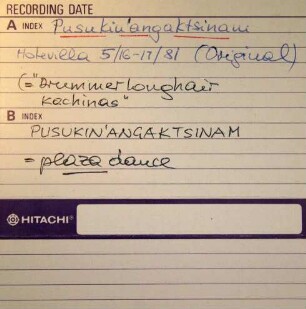 RECORDING DATE
A INDEX Pusukin'angaktsinam
Hotevilla 5/16-17/81 (Original)
(="Drummer longhair
kachinas"
B INDEX
PUSUKIN'ANGAKTSINAM
= plaza dance
HITACHI